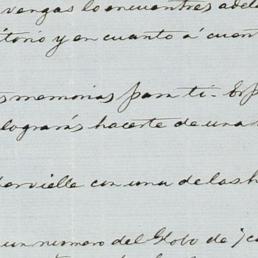 vengas lo encuentres adela
itorio y en cuanto á cuen
s memorias para ti. Esp
lograrás hacerte de una
dervielle con una de las h
un numero del Globo de